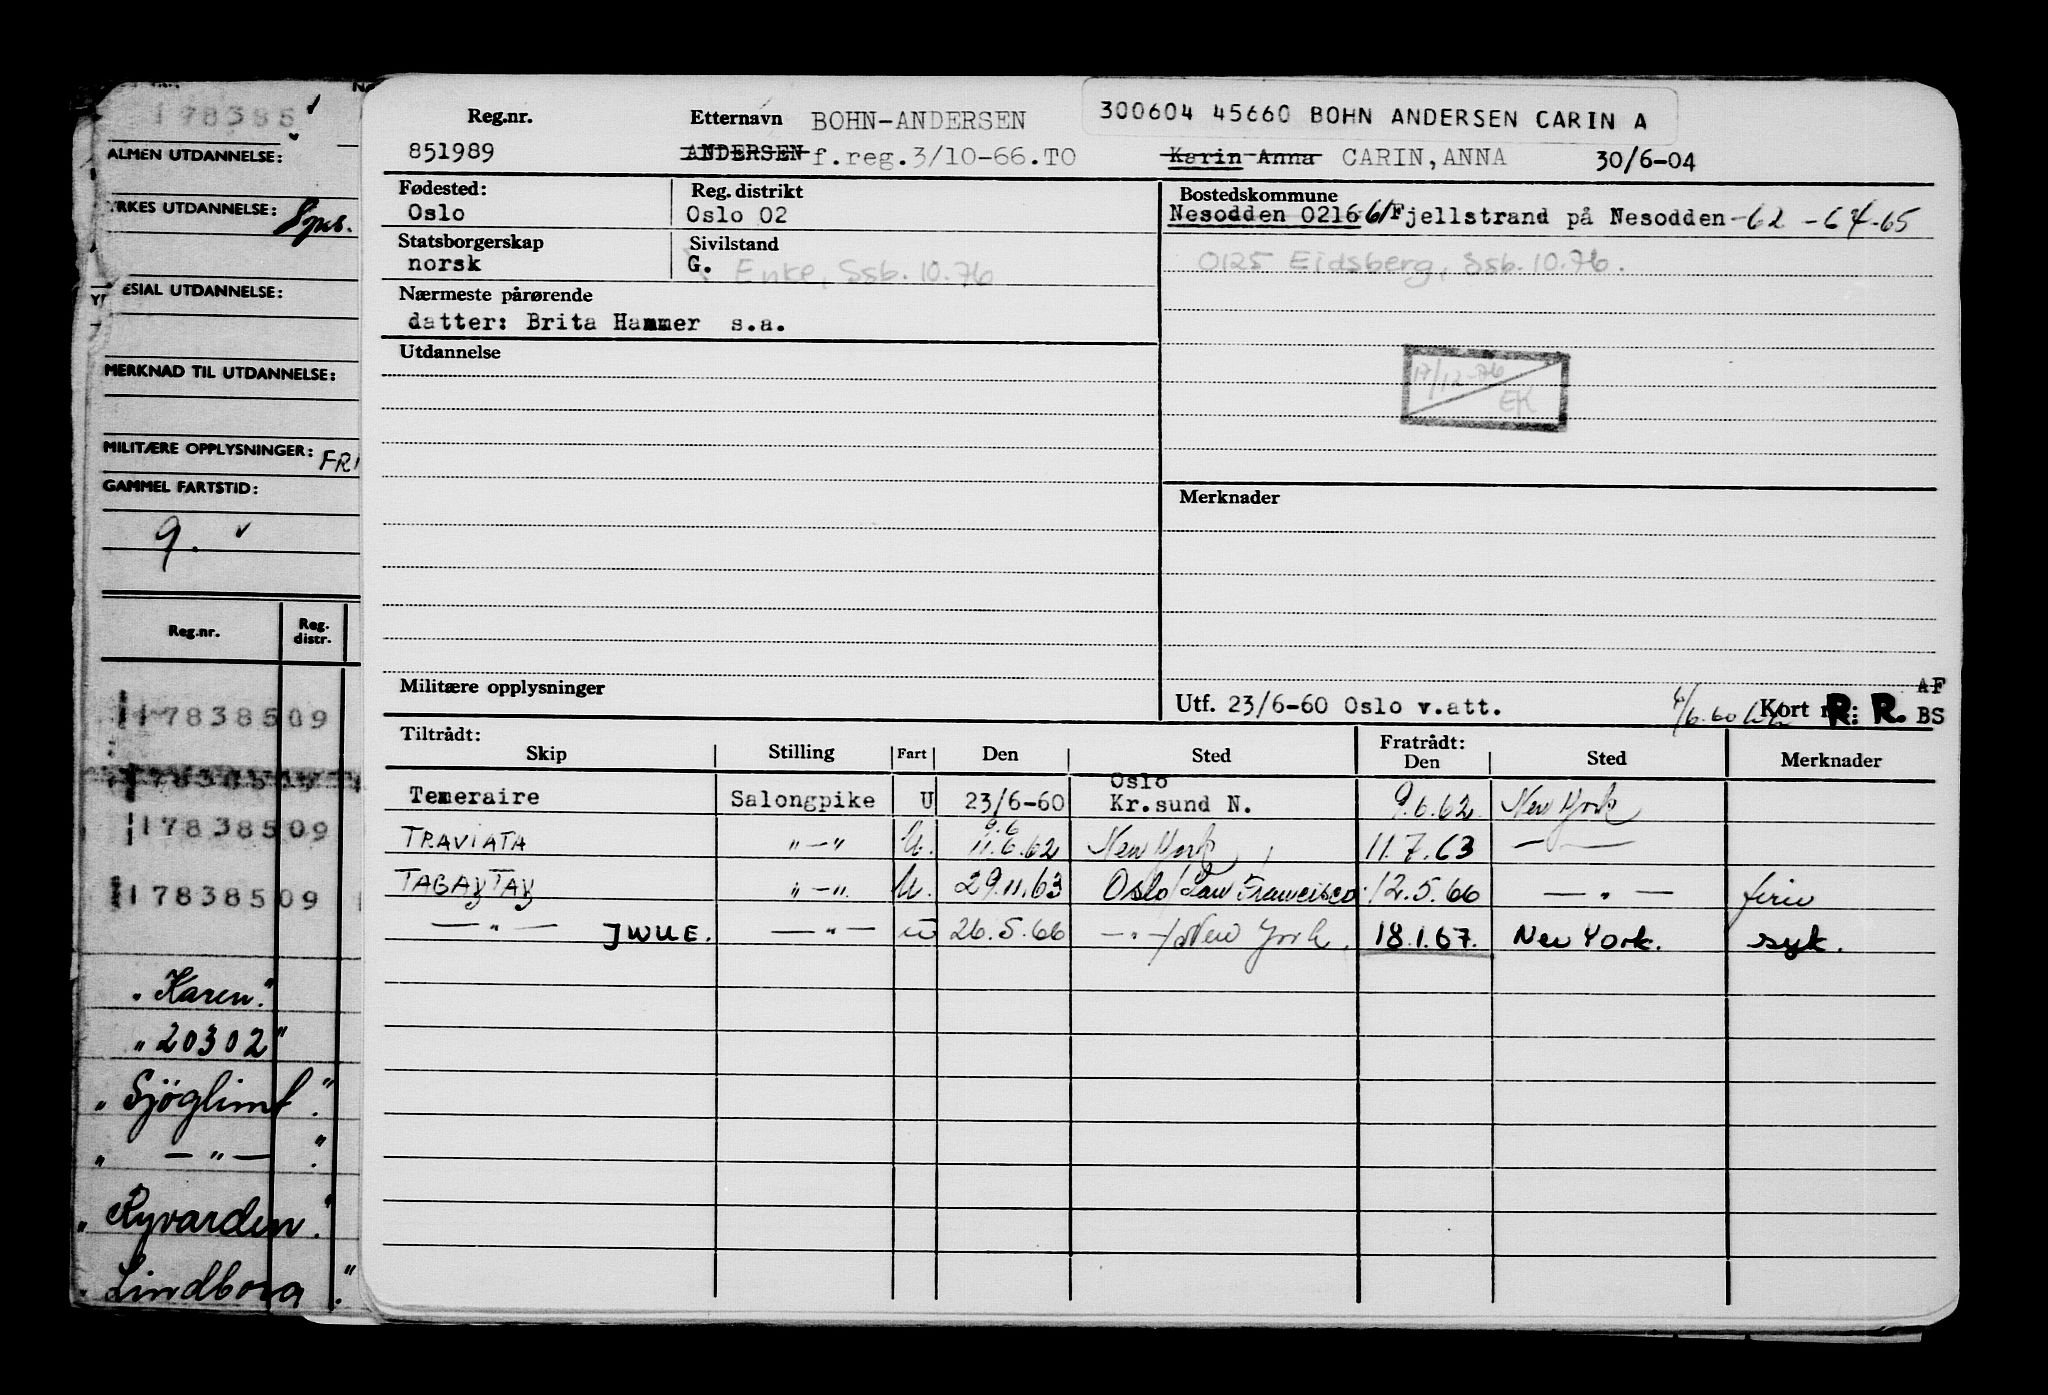 178385
ALMEN UTDANNELSE:
YRKES UTDANNELSE:
ESIAL UTDANNELSE:
MERKNAD TIL UTDANNELSE:
MILITÆRE OPPLYSNINGER: FRI
GAMMEL FARTSTID:
9.
Reg.nr. Reg. distr.
17838509
17838509
17838509
17838509
"Karen"
"20302"
"Sjöglimt."
" — " — "
"Ryvarden."
"Lindborg."
Reg.nr. Etternavn BOHN-ANDERSEN 300604 45660 BOHN ANDERSEN CARIN A
851989 ANDERSEN f.reg.3/10-66.TO Karin Anna CARIN, ANNA 30/6-04
Fødested: Reg. distrikt Bostedskommune
Oslo Oslo 02 Nesodden 0216 61/Fjellstrand på Nesodden -62 -64-65
Statsborgerskap Sivilstand
norsk G. Enke, Ssb. 10.76 0125 Eidsberg, Ssb. 10.76.
Nærmeste pårørende
datter: Brita Hammer s.a.
Utdannelse
17/12-76
EK
Merknader
Militære opplysninger
Utf. 23/6-60 Oslo v.att. Kort R: R. AF
BS
Tiltrådt: Fratrådt:
Skip Stilling Fart Den Sted Den Sted Merknader
Temeraire Salongpike U 23/6-60 Oslo Kr.sund N. 9.6.62 New York
TRAVIATA " — " U. 9.6 11.6.62 New York 11.7.63 — " —
TABAYTAY " — " U. 29.11.63 Oslo/San Francisco 12.5.66 — " — ferie
— " — JWUE. — " — u 26.5.66 — " — / New York. 18.1.67. New York. syk.